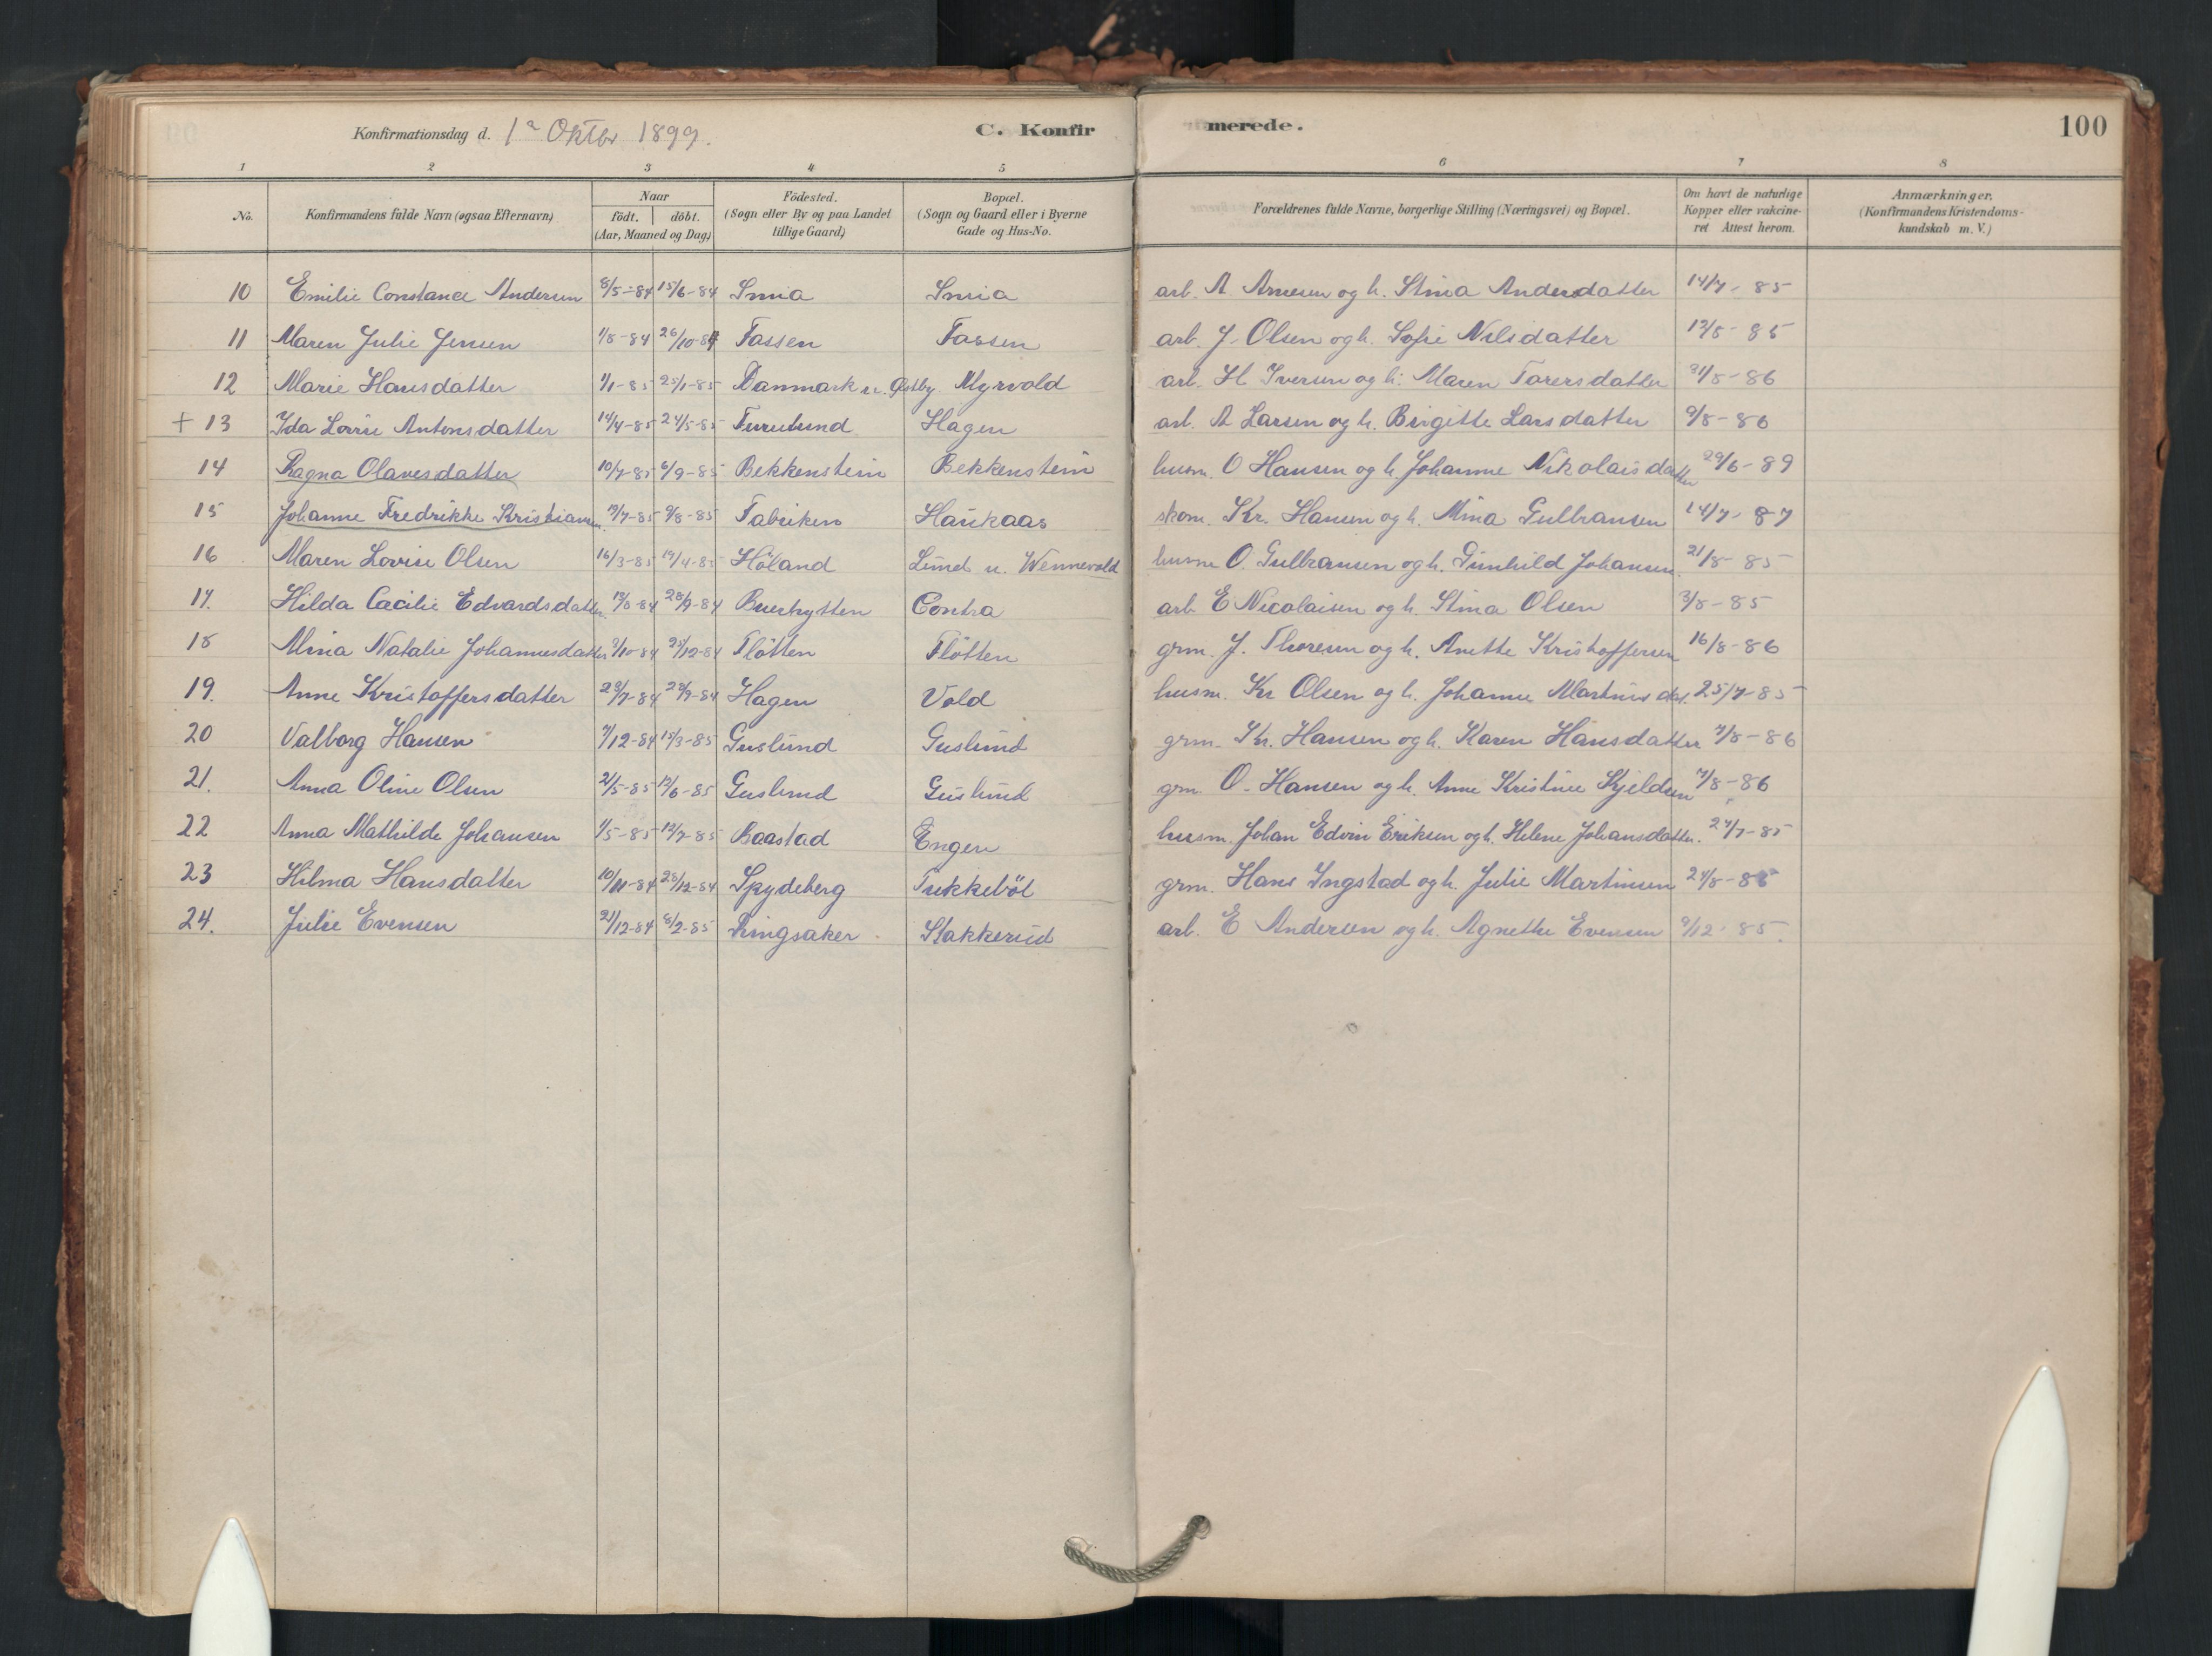 Konfirmationsdag d. 1ª Oktbr 1899.
C. Konfirmerede.
100
1 2 3 4 5 6 7 8
No.
Konfirmandens fulde Navn (ogsaa Efternavn)
Naar
födt. döbt.
(Aar, Maaned og Dag)
Födested.
(Sogn eller By og paa Landet
tillige Gaard)
Bopæl.
(Sogn og Gaard eller i Byerne
Gade og Hus-No.
Forældrenes fulde Navne, borgerlige Stilling (Næringsvei) og Bopæl.
Om havt de naturlige
Kopper eller vakcine-
ret Attest herom.
Anmærkninger.
(Konfirmandens Kristendoms-
kundskab m. V.)
10 Emilie Constance Andersen 8/5-84 15/6-84 Smia Smia arb. A. Arnesen og h. Stina Andersdatter 14/7-85
11 Maren Julie Jensen 1/8-84 26/10-84 Fassen Fassen arb. J. Olsen og h. Sofie Nilsdatter 12/8-85
12 Marie Hansdatter 1/1-85 25/1-85 Danmark u. Østby Myrvold arb. H. Iversen og h. Maren Torersdatter 31/8-86
+ 13 Ida Lovise Antonsdatter 14/4-85 24/5-85 Furulund Hagen arb. A Larsen og h. Birgitte Larsdatter 9/8-86
14 Ragna Olavesdatter 10/7-85 6/9-85 Bekkenstein Bekkenstein husm. O Hansen og h. Johanne Nikolaisdatter 29/6-89
15 Johanne Fredrikke Kristiansen 9/8-85 Fabriken Haukaas skom. Kr. Hansen og h. Mina Gulbransen 14/7-87
16 Maren Lovise Olsen 16/3-85 19/4-85 Höland Lund u. Wennevold husm O. Gulbransen og h. Gunhild Johansen 21/8-85
17. Hilda Cæcilie Edvardsdatter 28/9-84 Buerhytten Contra arb. E Nicolaisen og h. Stina Olsen 3/8-85
18 Mina Natalie Johannesdatter 9/10-84 25/12-84 Flötten Flötten grm. J. Thoresen og h. Anette Kristoffersen 16/8-86
19. Anne Kristoffersdatter 29/7-84 Hagen Vold husm. Kr Olsen og h. Johanne Martinusdat. 25/7-85
20 Valborg Hansen 7/12-84 15/3-85 Guslund Guslund grm. Kr. Hansen og h. Karen Hansdatter 7/8-86
21. Anna Oline Olsen 21/5-85 12/6-85 Guslund Guslund grm. O. Hansen og h. Anne Kristine Kjeldsen 7/8-86
22 Anna Mathilde Johansen 1/5-85 12/7-85 Baastad Engen husm. Johan Edvin Eriksen og h. Helene Johansdatter. 27/7-85
23 Hilma Hansdatter 10/11-84 28/12-84 Spydeberg Tukkeböl grm. Hans Ingstad og h. Julie Martinsen 24/8-86
24. Julie Evensen 21/12-84 8/2-85 Ringsaker Stakkerud arb. E Andersen og h. Agnethe Evensen 9/12-85.